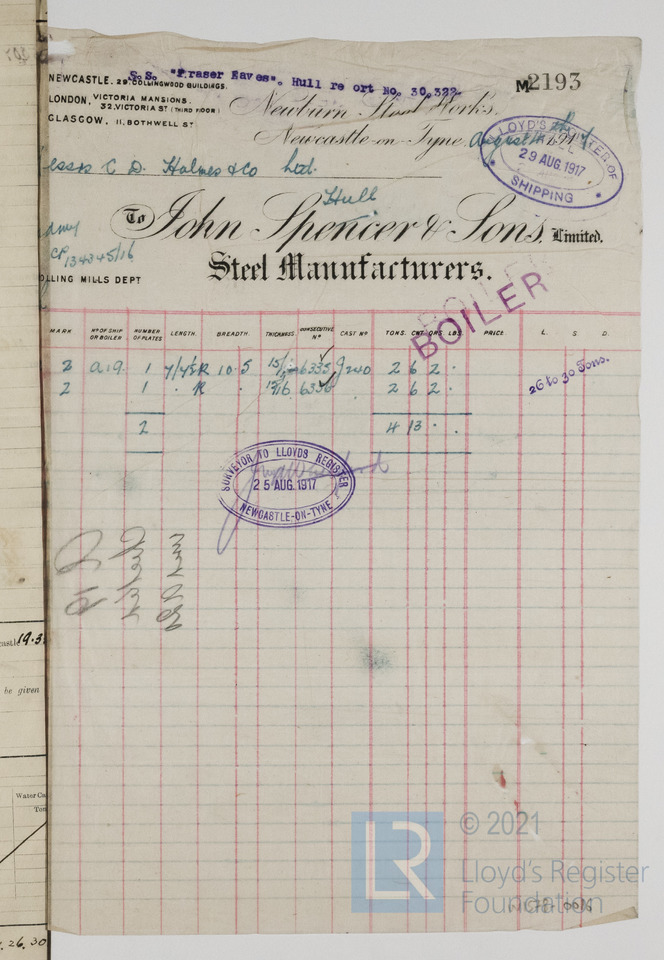 S.S. "Fraser Eaves". Hull re ort No. 30,322.
M 2193
NEWCASTLE. 29 COLLINGWOOD BUILDINGS.
LONDON, VICTORIA MANSIONS.
32, VICTORIA ST (THIRD FLOOR)
GLASGOW, 11, BOTHWELL ST
Newburn Steel Works.
Newcastle-on-Tyne, August
LLOYD'S REGISTER OF
29 AUG. 1917
SHIPPING
essrs C. D. Holmes & Co Ltd.
Hull
To John Spencer & Sons, Limited.
Steel Manufacturers.
CP 134345/16
OLLING MILLS DEPT
BOILER
BOILER
MARK Nº OF SHIP OR BOILER NUMBER OF PLATES LENGTH. BREADTH. THICKNESS. CONSECUTIVE Nº CAST Nº TONS. CWT. QRS. LBS. PRICE L. S. D.
2 a19 1 R 10·5 6335 J240 2 6 2 .
2 1 . R . 15/16 6336 2 6 2 .
26 to 30 Tons.
2 4 13 . .
SURVEYOR TO LLOYDS REGISTER
25 AUG. 1917
NEWCASTLE-ON-TYNE
19.3
be given
Water Ca
Ton
26.30
© 2021
LR
Lloyd's Register
Foundation